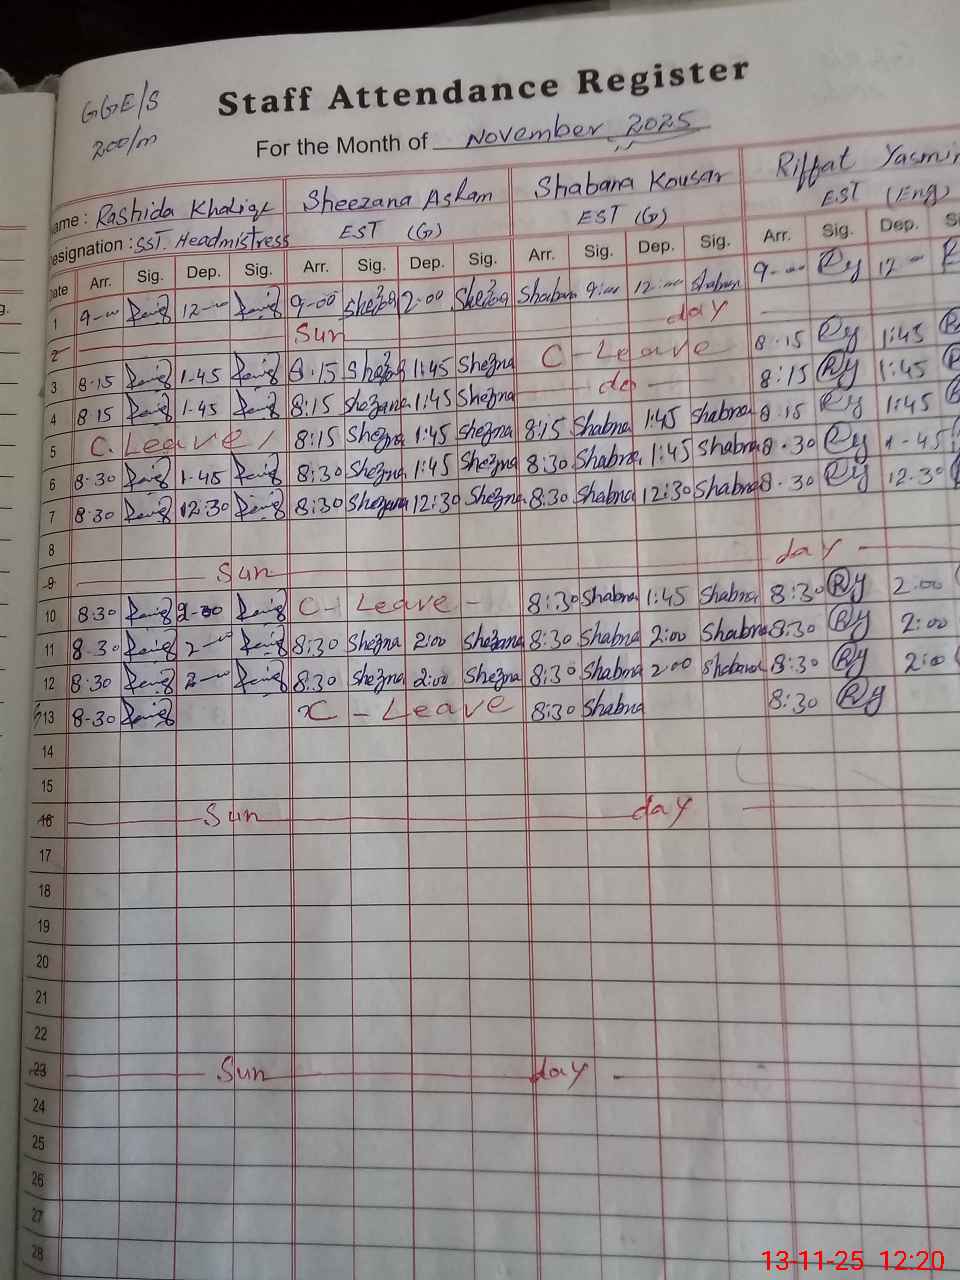 GGE/S
200/m
Staff Attendance Register
For the Month of November 2025
ame: Rashida Khaliq Sheezana Aslam Shabana Kousar Riffat Yasmin
esignation: SST. Headmistress EST (G) EST (G) EST (Eng)
Date Arr. Sig. Dep. Sig. Arr. Sig. Dep. Sig. Arr. Sig. Dep. Sig. Arr. Sig. Dep. Si
1 9-00 12-00 9-00 Shezna 2:00 Shezna Shabana 9:00 12:00 Shabana 9-00 Ry 12-00
2 Sun day
3 8.15 1.45 8.15 Shezna 1:45 Shezna C-Leave 8.15 Ry 1:45
4 8.15 1.45 8:15 Shezana 1:45 Shezna do 8:15 Ry 1:45
5 C. Leave / 8:15 Shezna 1:45 Shezna 8:15 Shabna 1:45 Shabna 8.15 Ry 1:45
6 8.30 1-45 8:30 Shezna 1:45 Shezna 8:30 Shabna 1:45 Shabna 8.30 Ry 1-45
7 8.30 12:30 8:30 Shezana 12:30 Shezna 8:30 Shabna 12:30 Shabna 8.30 Ry 12.30
8
9 Sun day
10 8.30 C-Leave- 8:30 Shabna 1:45 Shabna 8:30 Ry 2:00
11 8.30 2-00 8:30 Shezna 2:00 Shezana 8:30 Shabna 2:00 Shabna 8:30 Ry 2:00
12 8:30 2-00 8:30 Shezna 2:00 Shezna 8:30 Shabna 2:00 Shabana 8:30 Ry 2:00
13 8-30 C-Leave 8:30 Shabna 8:30 Ry
14
15
16 Sun day
17
18
19
20
21
22
23 Sun day
24
25
26
27
28
13-11-25 12:20